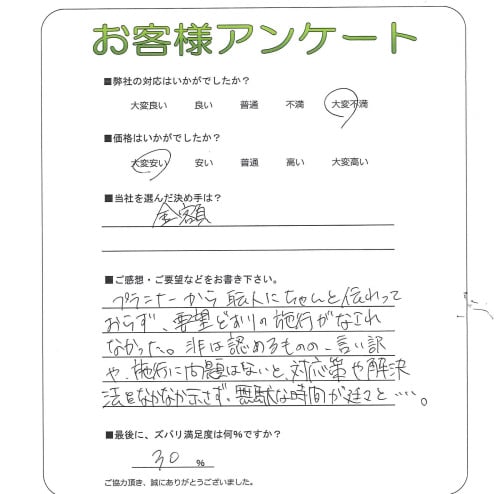 お客様アンケート
■弊社の対応はいかがでしたか？
大変良い 良い 普通 不満 大変不満
■価格はいかがでしたか？
大変安い 安い 普通 高い 大変高い
■当社を選んだ決め手は？
金額
■ご感想・ご要望などをお書き下さい。
プランナーから職人にちゃんと伝わって
おらず、要望どおりの施行がなされ
なかった。非は認めるものの、言い訳
や、施行に問題はないと、対応策や解決
法はなかなか示さず、無駄な時間が延々と…。
■最後に、ズバリ満足度は何％ですか？
30 %
ご協力頂き、誠にありがとうございました。